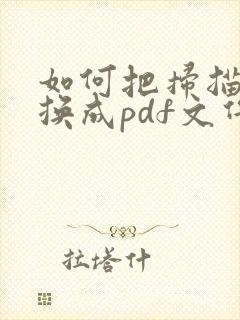 如何把扫描
换成pdf文件
拉塔什